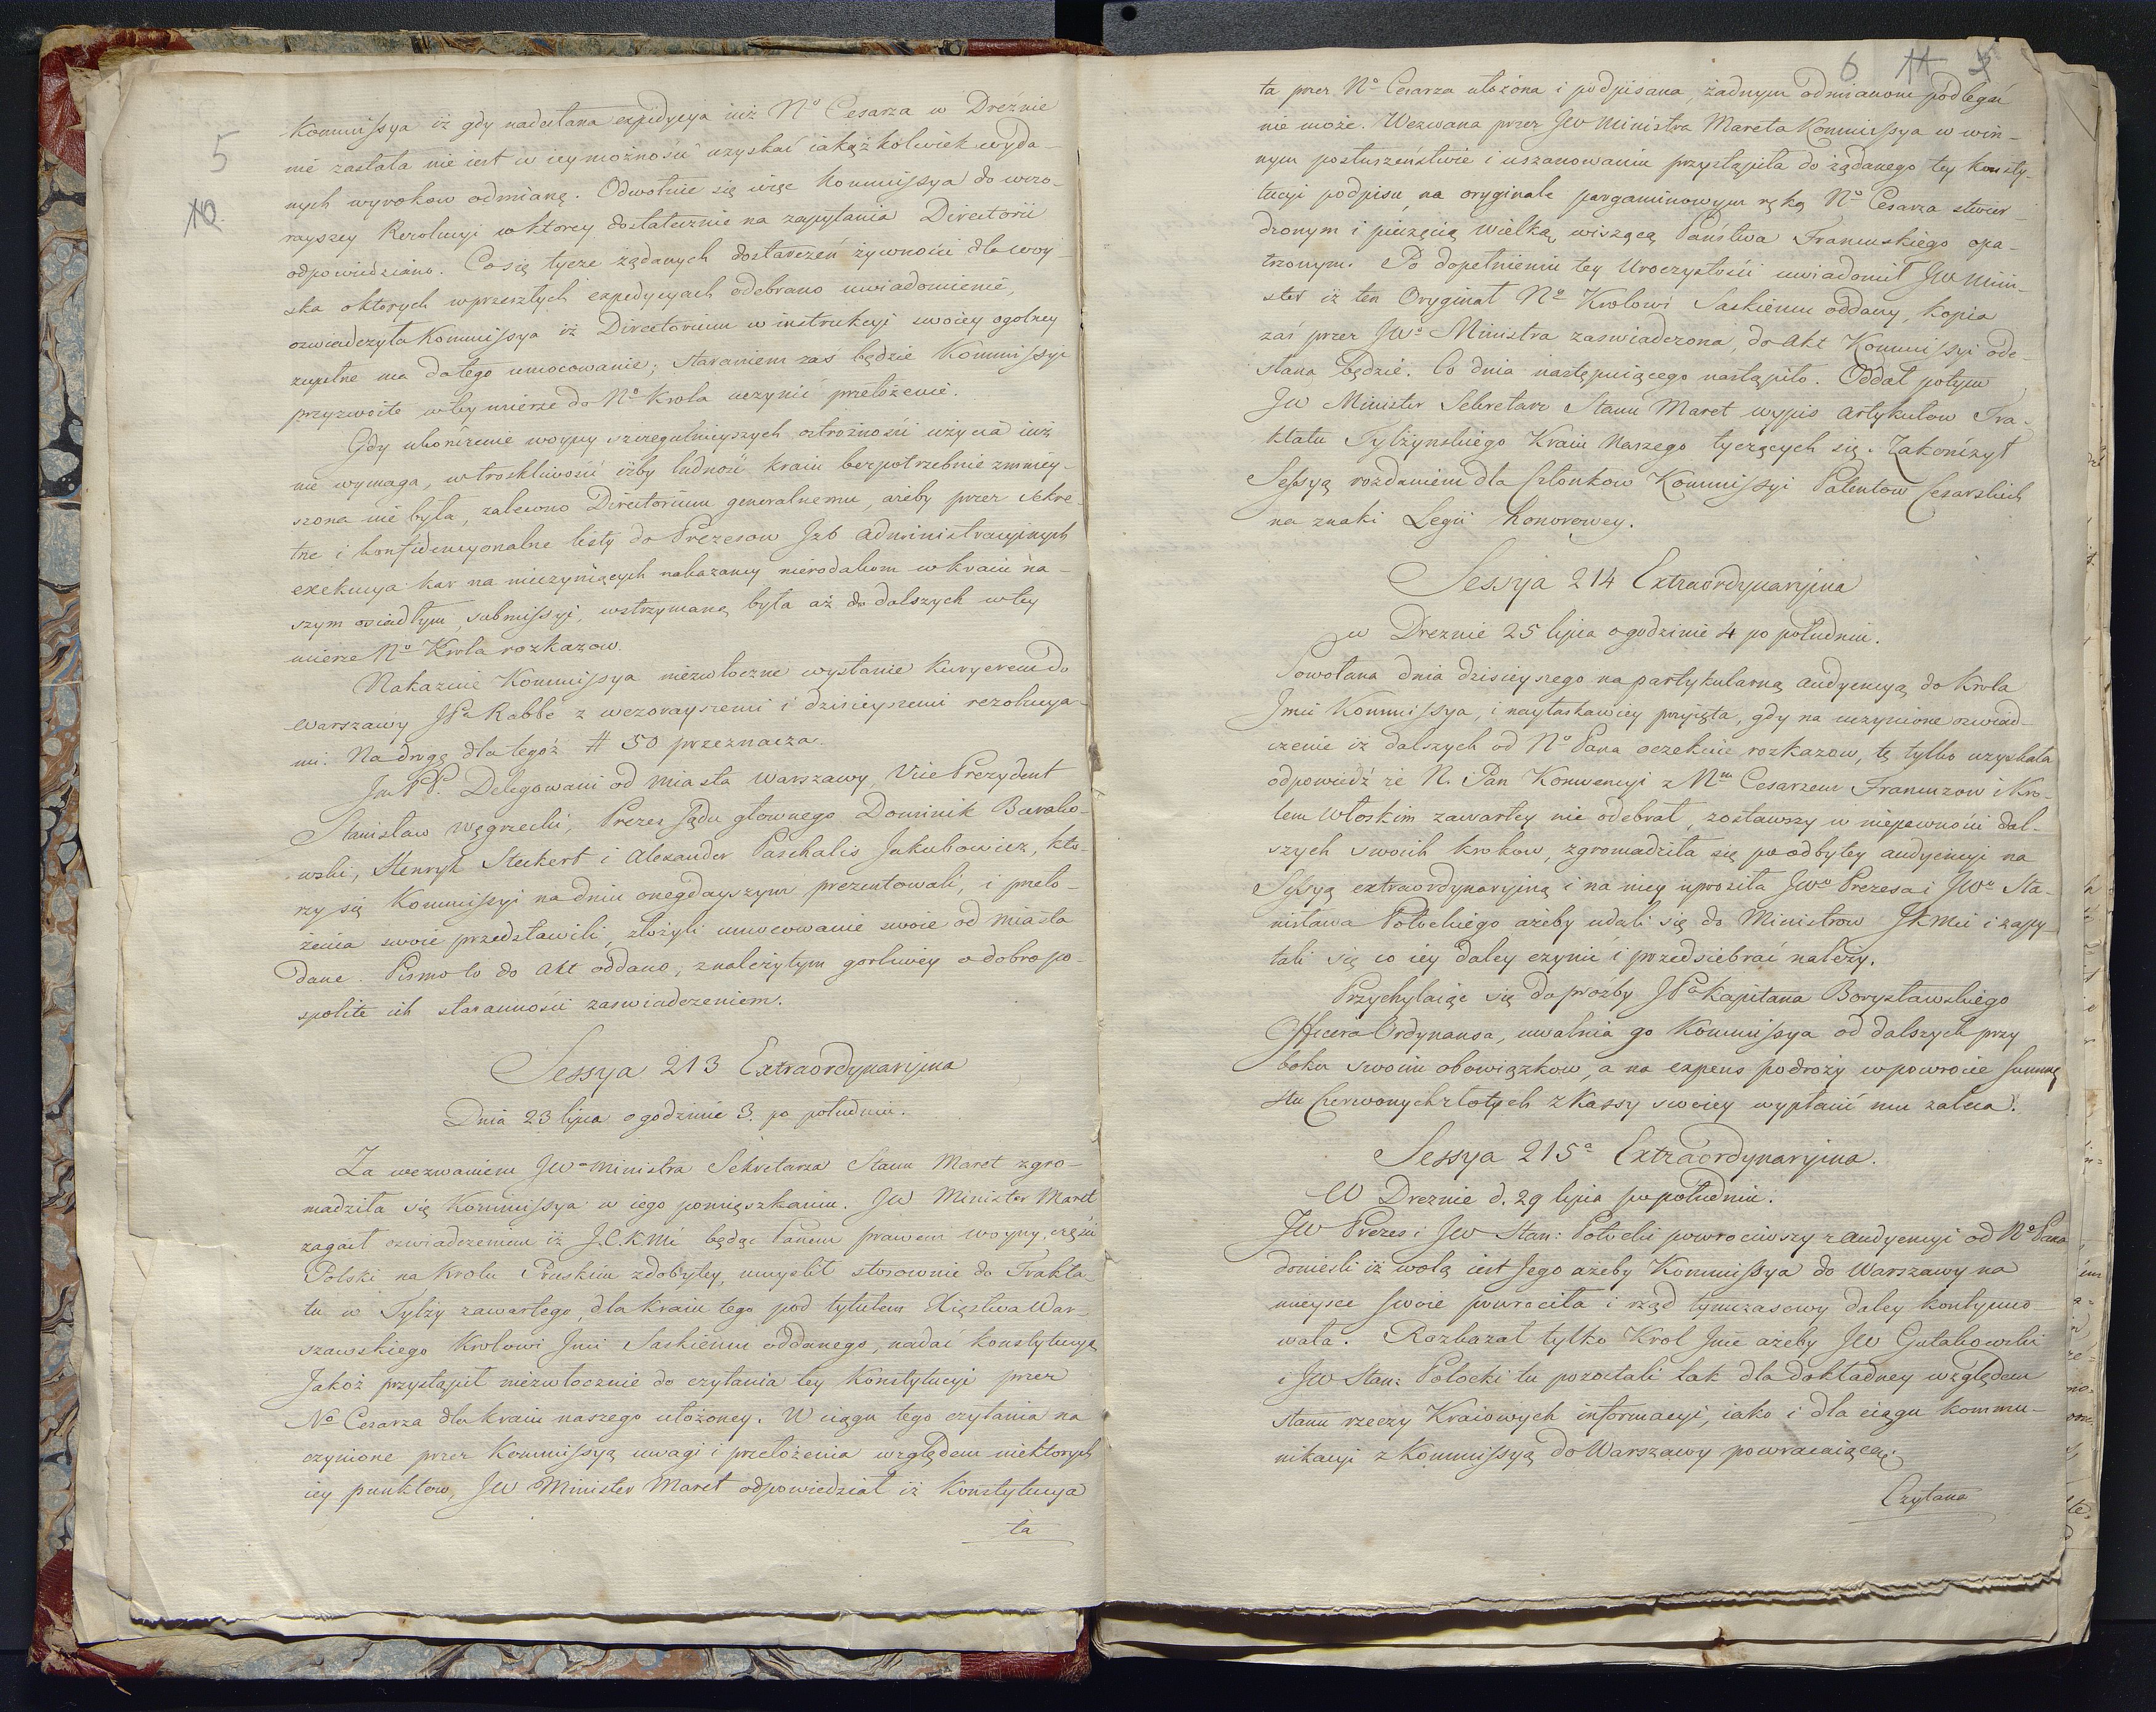 5
10
Kommissya iż gdy nadesłana expedycya iuż No Cesarza w Dreźnie
nie zastała nie iest w iey możności uzyskać iakążkolwiek wyda-
nych wyrokow odmianę. Odwołuie się więc Kommissya do wczo-
rayszey Rezolucyi w ktorey dostatecznie na zapytania Directorii
odpowiedziano. Co się tycze żądanych dostarczeń żywności dla woy-
ska o ktorych w przeszłych expedycyach odebrano uwiadomienie,
oswiadczyła Kommissya iż Directorium w instrukcyi swoiey ogolney
zupełne ma do tego umocowanie; staraniem zaś będzie Kommissyi
przyzwoite w tey mierze do No Krola uczynić przełożenie.
Gdy ukończenie woyny szczegulnieyszych ostrożności użycia iuż
nie wymaga, w troskliwości iżby ludność kraiu bezpotrzebnie zmniey-
szona nie była, zalecono Directorium generalnemu, ażeby przez sekre-
tne i konfidencyonalne listy do Prezesow Izb administracyinych
exekucya kar na nieczyniących nakazaney nierodakom w kraiu na-
szym osiadłym, submissyi, wstrzymaną była aż do dalszych w tey
mierze No Krola rozkazow.
Nakazuie Kommissya niezwłoczne wysłanie kuryerem do
Warszawy JPa Rabbe z wczorayszemi i dzisieyszemi rezolucya-
mi. Na drogę dla tegoż # 50 przeznacza.
Jm PP. Delegowani od Miasta Warszawy, Vice Prezydent
Stanisław Węgrzecki, Prezes Sądu głownego Dominik Barako-
wski, Henryk Steckert i Alexander Paschalis Jakubowicz, kto-
rzy się Kommissyi na dniu onegdayszym prezentowali, i przeło-
żenia swoie przedstawili, złożyli umocowanie swoie od Miasta
dane. Pismo to do Akt oddano, z należytym gorliwey o dobro po-
spolite ich staranności zaswiadczeniem.
Sessya 213 Extraordynaryina
Dnia 23 lipca o godzinie 3. po południu.
Za wezwaniem JWo Ministra Sekretarza Stanu Maret zgro-
madziła się Kommissya w iego pomięszkaniu. JW Minister Maret
zagaił oswiadczeniem iż J.C.K Mć będąc Panem prawem woyny, części
Polski na Krolu Pruskim zdobytey, umyslił stosownie do Trakta-
tu w Tylży zawartego, dla kraiu tego pod tytułem Xięstwa War-
szawskiego Krolowi Jmci Saskiemu oddanego, nadać konstytucyę
Jakoż przystąpił niezwłocznie do czytania tey Konstytucyi przez
No Cesarza dla kraiu naszego ułożoney. W ciągu tego czytania na
czynione przez Kommissyą uwagi i przełożenia względem niektorych
iey punktow, JW Minister Maret odpowiedział iż Konstytucya
ta
6 11
ta przez No Cesarza ułożona i podpisana, żadnym odmianom podlegać
nie może. Wezwana przez JW Ministra Mareta Kommissya w win-
nym posłuszeństwie i uszanowaniu przystąpiła do żądanego tey konsty-
tucyi podpisu, na oryginale pargaminowym ręką No Cesarza stwier-
dzonym i pieczęcią wielką wiszącą Państwa Francuskiego opa-
trzonym. Po dopełnieniu tey Uroczystości uwiadomił JW Mini-
ster iż ten Oryginał No Krolowi Saskiemu oddany, kopia
zaś przez JWo Ministra zaswiadczona, do Akt Kommissyi ode-
słana będzie. Co dnia następuiącego nastąpiło. Oddał potym
JW Minister Sekretarz Stanu Maret wypis artykułow Tra-
ktatu Tylżynskiego Kraiu Naszego tyczących się. Zakończył
Sessyą rozdaniem dla Członkow Kommissyi Patentow Cesarskich
na znaki Legii honorowey.
Sessya 214 Extraordynaryina
w Dreznie 25 lipca o godzinie 4 po południu.
Powołana dnia dzisieyszego na partykularną audyencyą do Krola
Jmci Kommissya, i nayłaskawiey przyięta, gdy na uczynione oswiad-
czenie iż dalszych od No Pana oczekuie rozkazow, tę tylko uzyskała
odpowiedź że N. Pan Konwencyi z Nm Cesarzem Francuzow i Kro-
lem Włoskim zawartey nie odebrał, zostawszy w niepewności dal-
szych swoich krokow, zgromadziła się po odbytey audyencyi na
Sessyą extraordynaryiną i na niey uprosiła JWo Prezesa i JWo Sta-
nisława Potockiego ażeby udali się do Ministrow JKMci i zapy-
tali się co iey daley czynić i przedsiebrać należy.
Przychylaiąc się do prozby JPa Kapitana Borysławskiego
Officera Ordynansa, uwalnia go Kommissya od dalszych przy
boku swoim obowiązkow, a na expens podroży w powrocie summę
stu Czerwonych złotych z Kassy swoiey wypłacić mu zaleca.
Sessya 215a Extraordynaryina.
W Dreznie d. 29 lipca po południu.
JW Prezes i JW Stan: Potocki powrociwszy z audyencyi od No Pana
doniesli iż wolą iest Jego ażeby Kommissya do Warszawy na
mieysce swoie powrociła i rząd tymczasowy daley kontynuo-
wała. Rozkazał tylko Krol Jmc ażeby JW Gutakowski
i JW Stan: Potocki tu pozostali tak dla dokładney względem
stanu rzeczy Kraiowych informacyi, iako i dla ciągu kommu-
nikacyi z Kommissyą do Warszawy powracaiącą.
Czytana